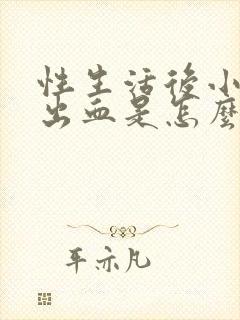 性生活後小
出血是怎麼
年亦凡